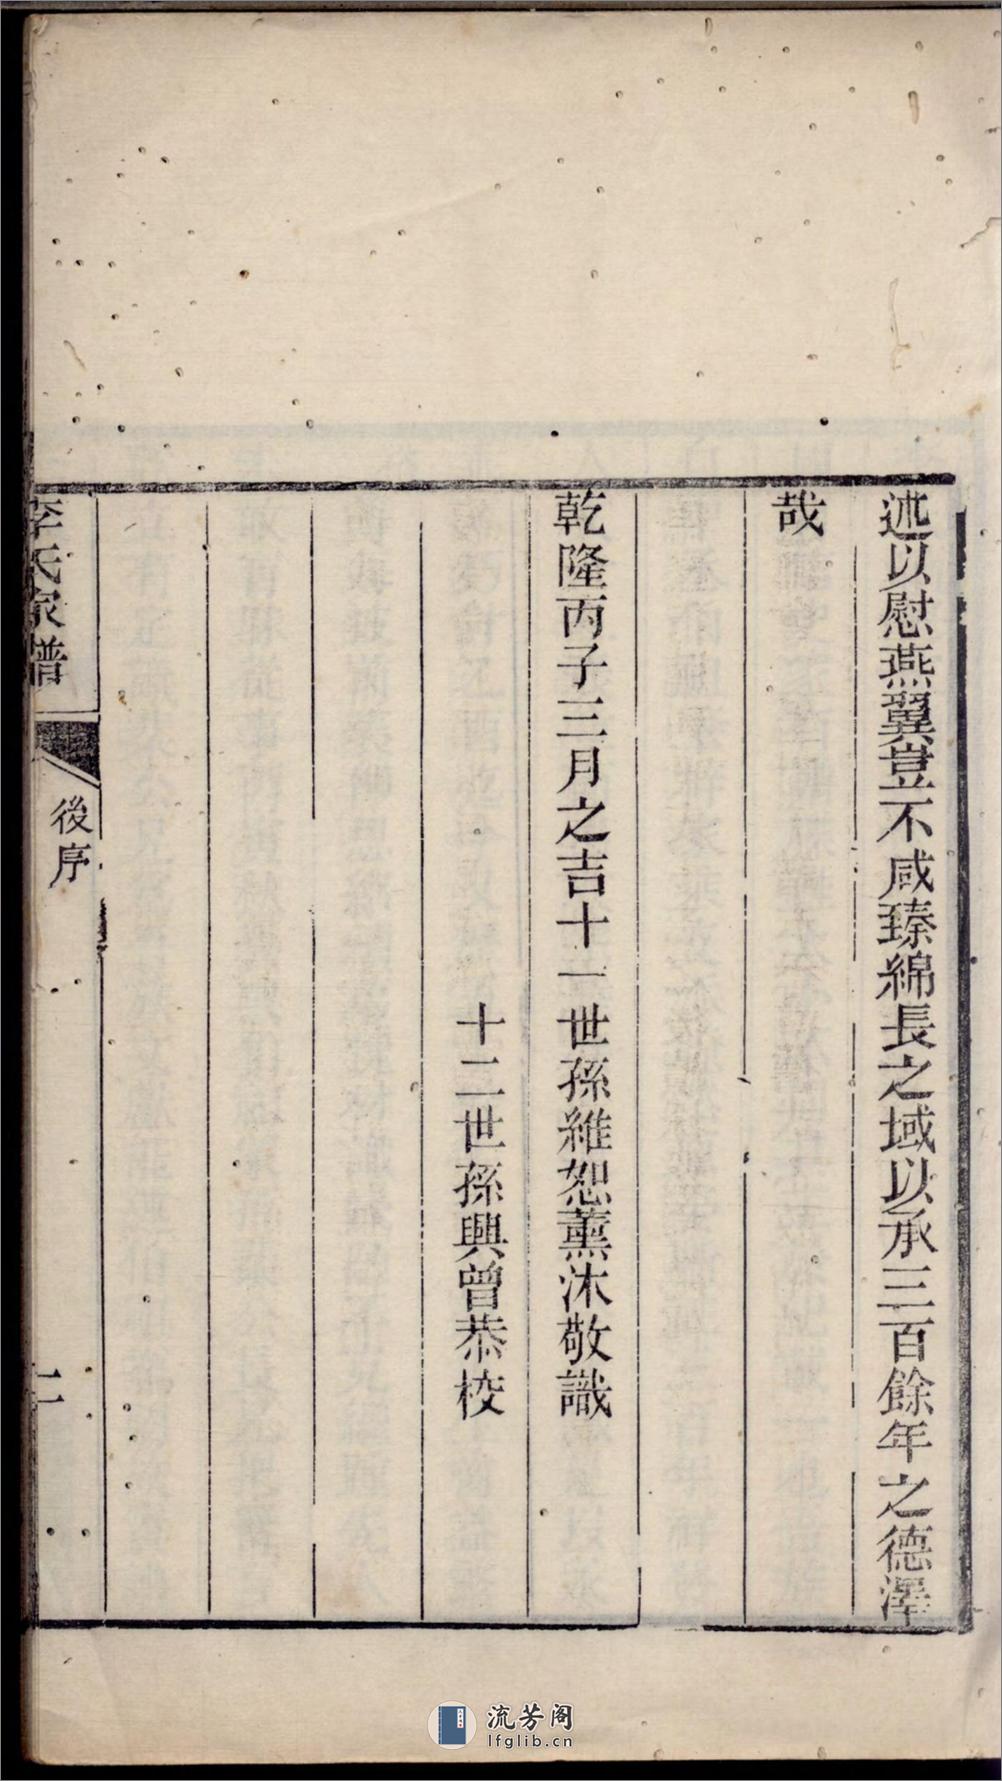 述以慰燕翼豈不咸臻綿長之域以承三百餘年之德澤
哉
乾隆丙子三月之吉十一世孫維恕薰沐敬識
十二世孫興曾恭校
李氏家譜
後序
二
流芳阁
lfglib.cn